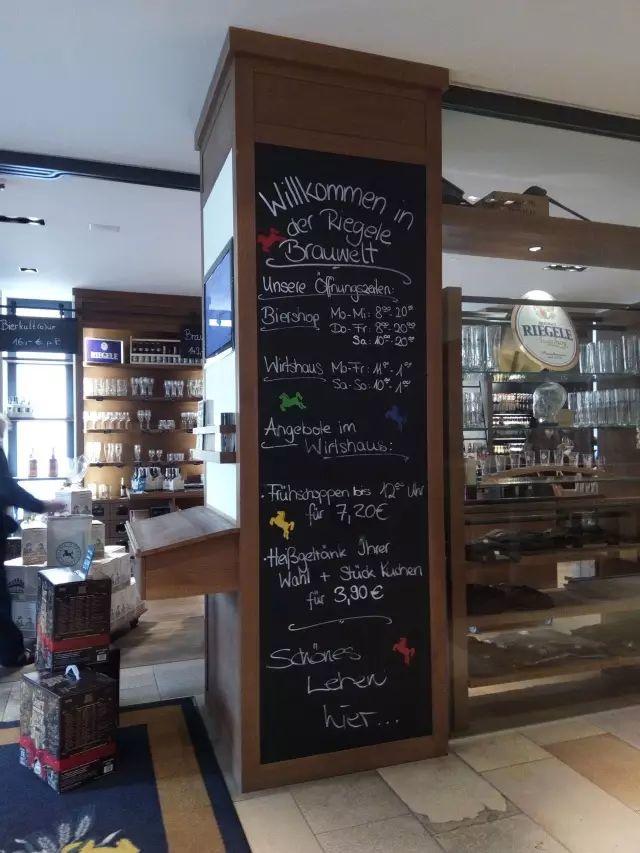 Willkommen in
der Riegele
Brauwelt
Unsere Öffnungszeiten:
Biershop Mo-Mi: 8⁰⁰-20⁰⁰
Do-Fr: 8⁰⁰-20⁰⁰
Sa: 10⁰⁰-20⁰⁰
Wirtshaus Mo-Fr: 11⁰⁰-1⁰⁰
Sa-So: 10⁰⁰-1⁰⁰
Angebote im
Wirtshaus:
• Frühschoppen bis 12⁰⁰ Uhr
für 7,20€
• Heißgetränk Ihrer
Wahl + Stück Kuchen
für 3,90€
Schönes
Leben
hier...
Bierkultour
16,-€ p.P.
RIEGELE
RIEGELE